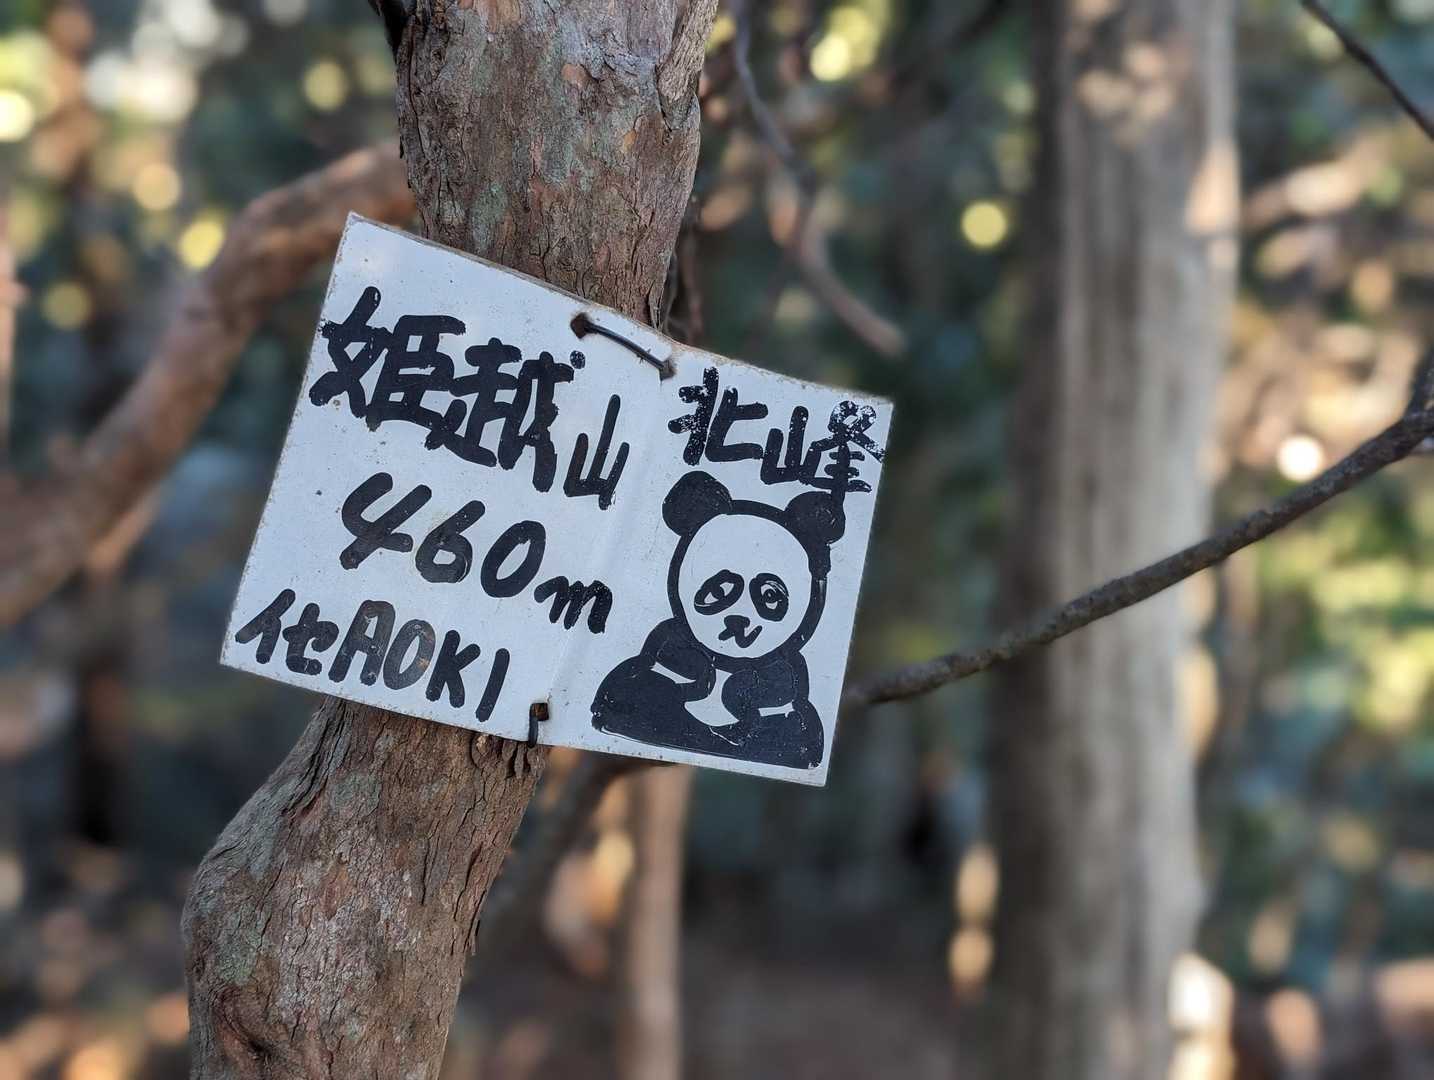 姫越山
460m
イセAOKI
北峰